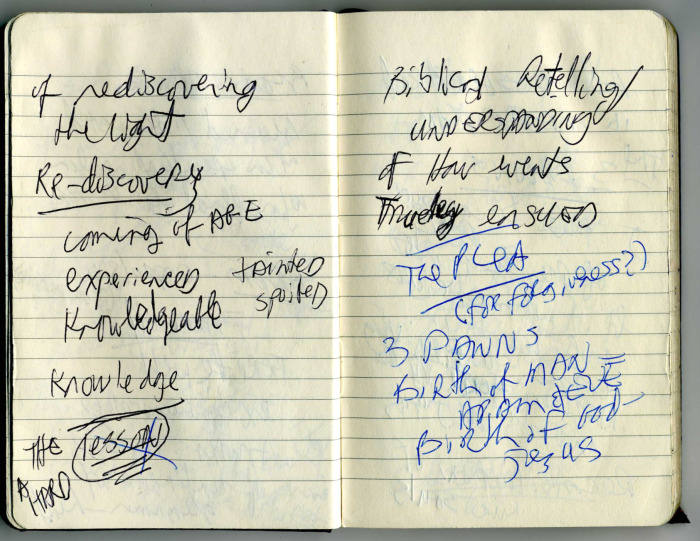 of rediscovering
the light
Re-discovery
coming of AGE
experienced tainted
spoiled
Knowledgeable
Knowledge
THE lesson
A HARD
Biblical Retelling
UNDERSTANDING
of How events
Truley ensued
The PLEA
(for forgiveness?)
3 PAWNS
Birth of MAN =
ADAM & EVE
Birth of GOD -
Jesus